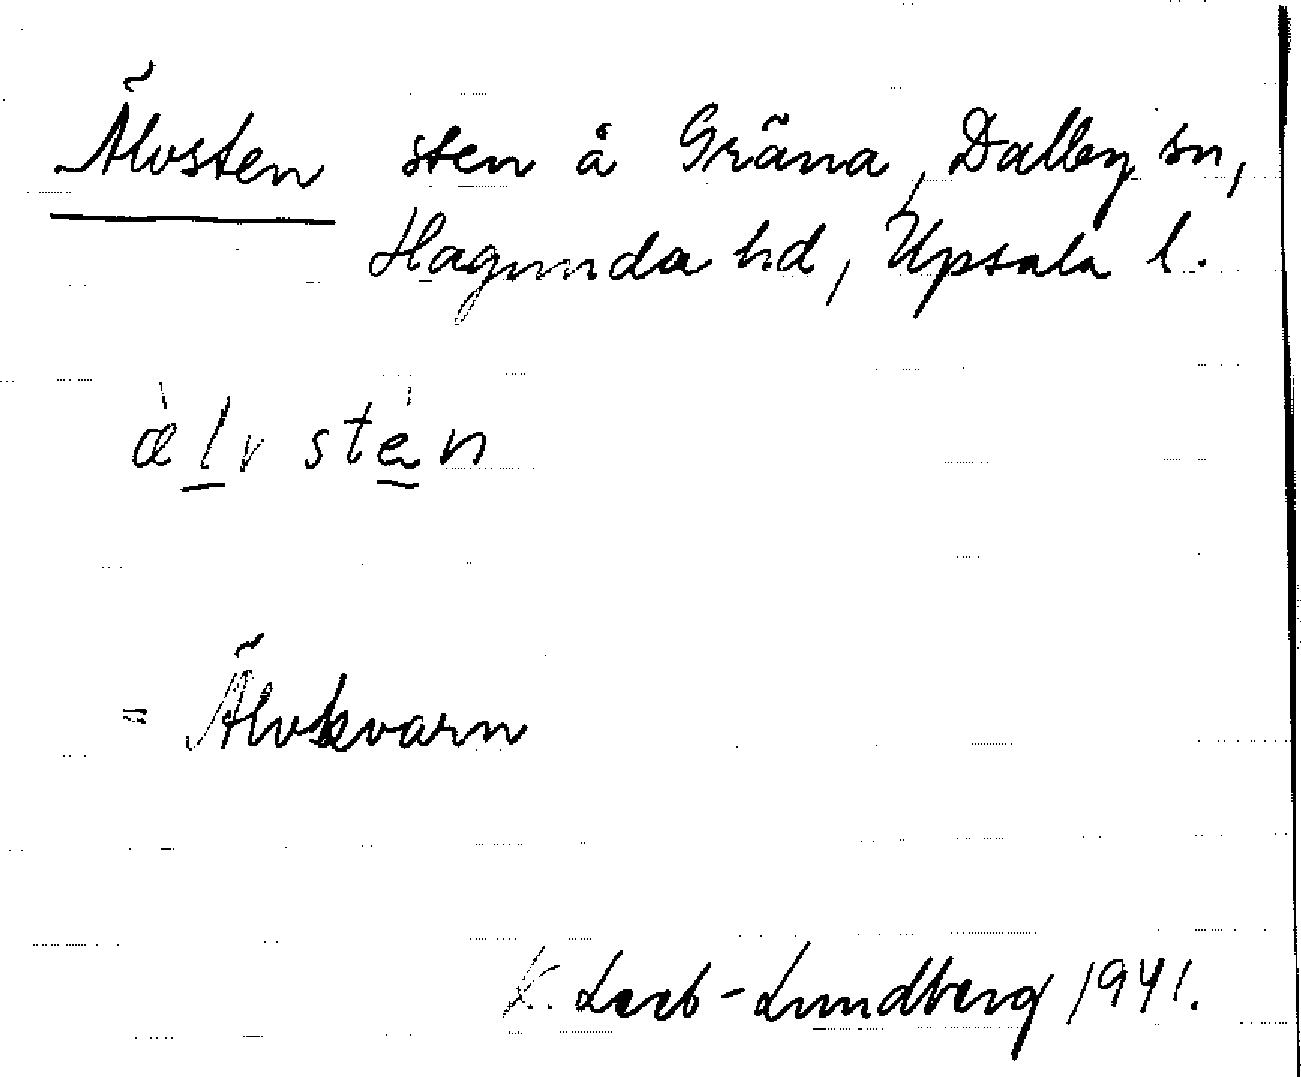 Älvsten sten å Gräna, Dalby sn,
Hagunda hd, Upsala l.
æ̀lvstèn
= Älvkvarn
K. Leeb-Lundberg 1941.